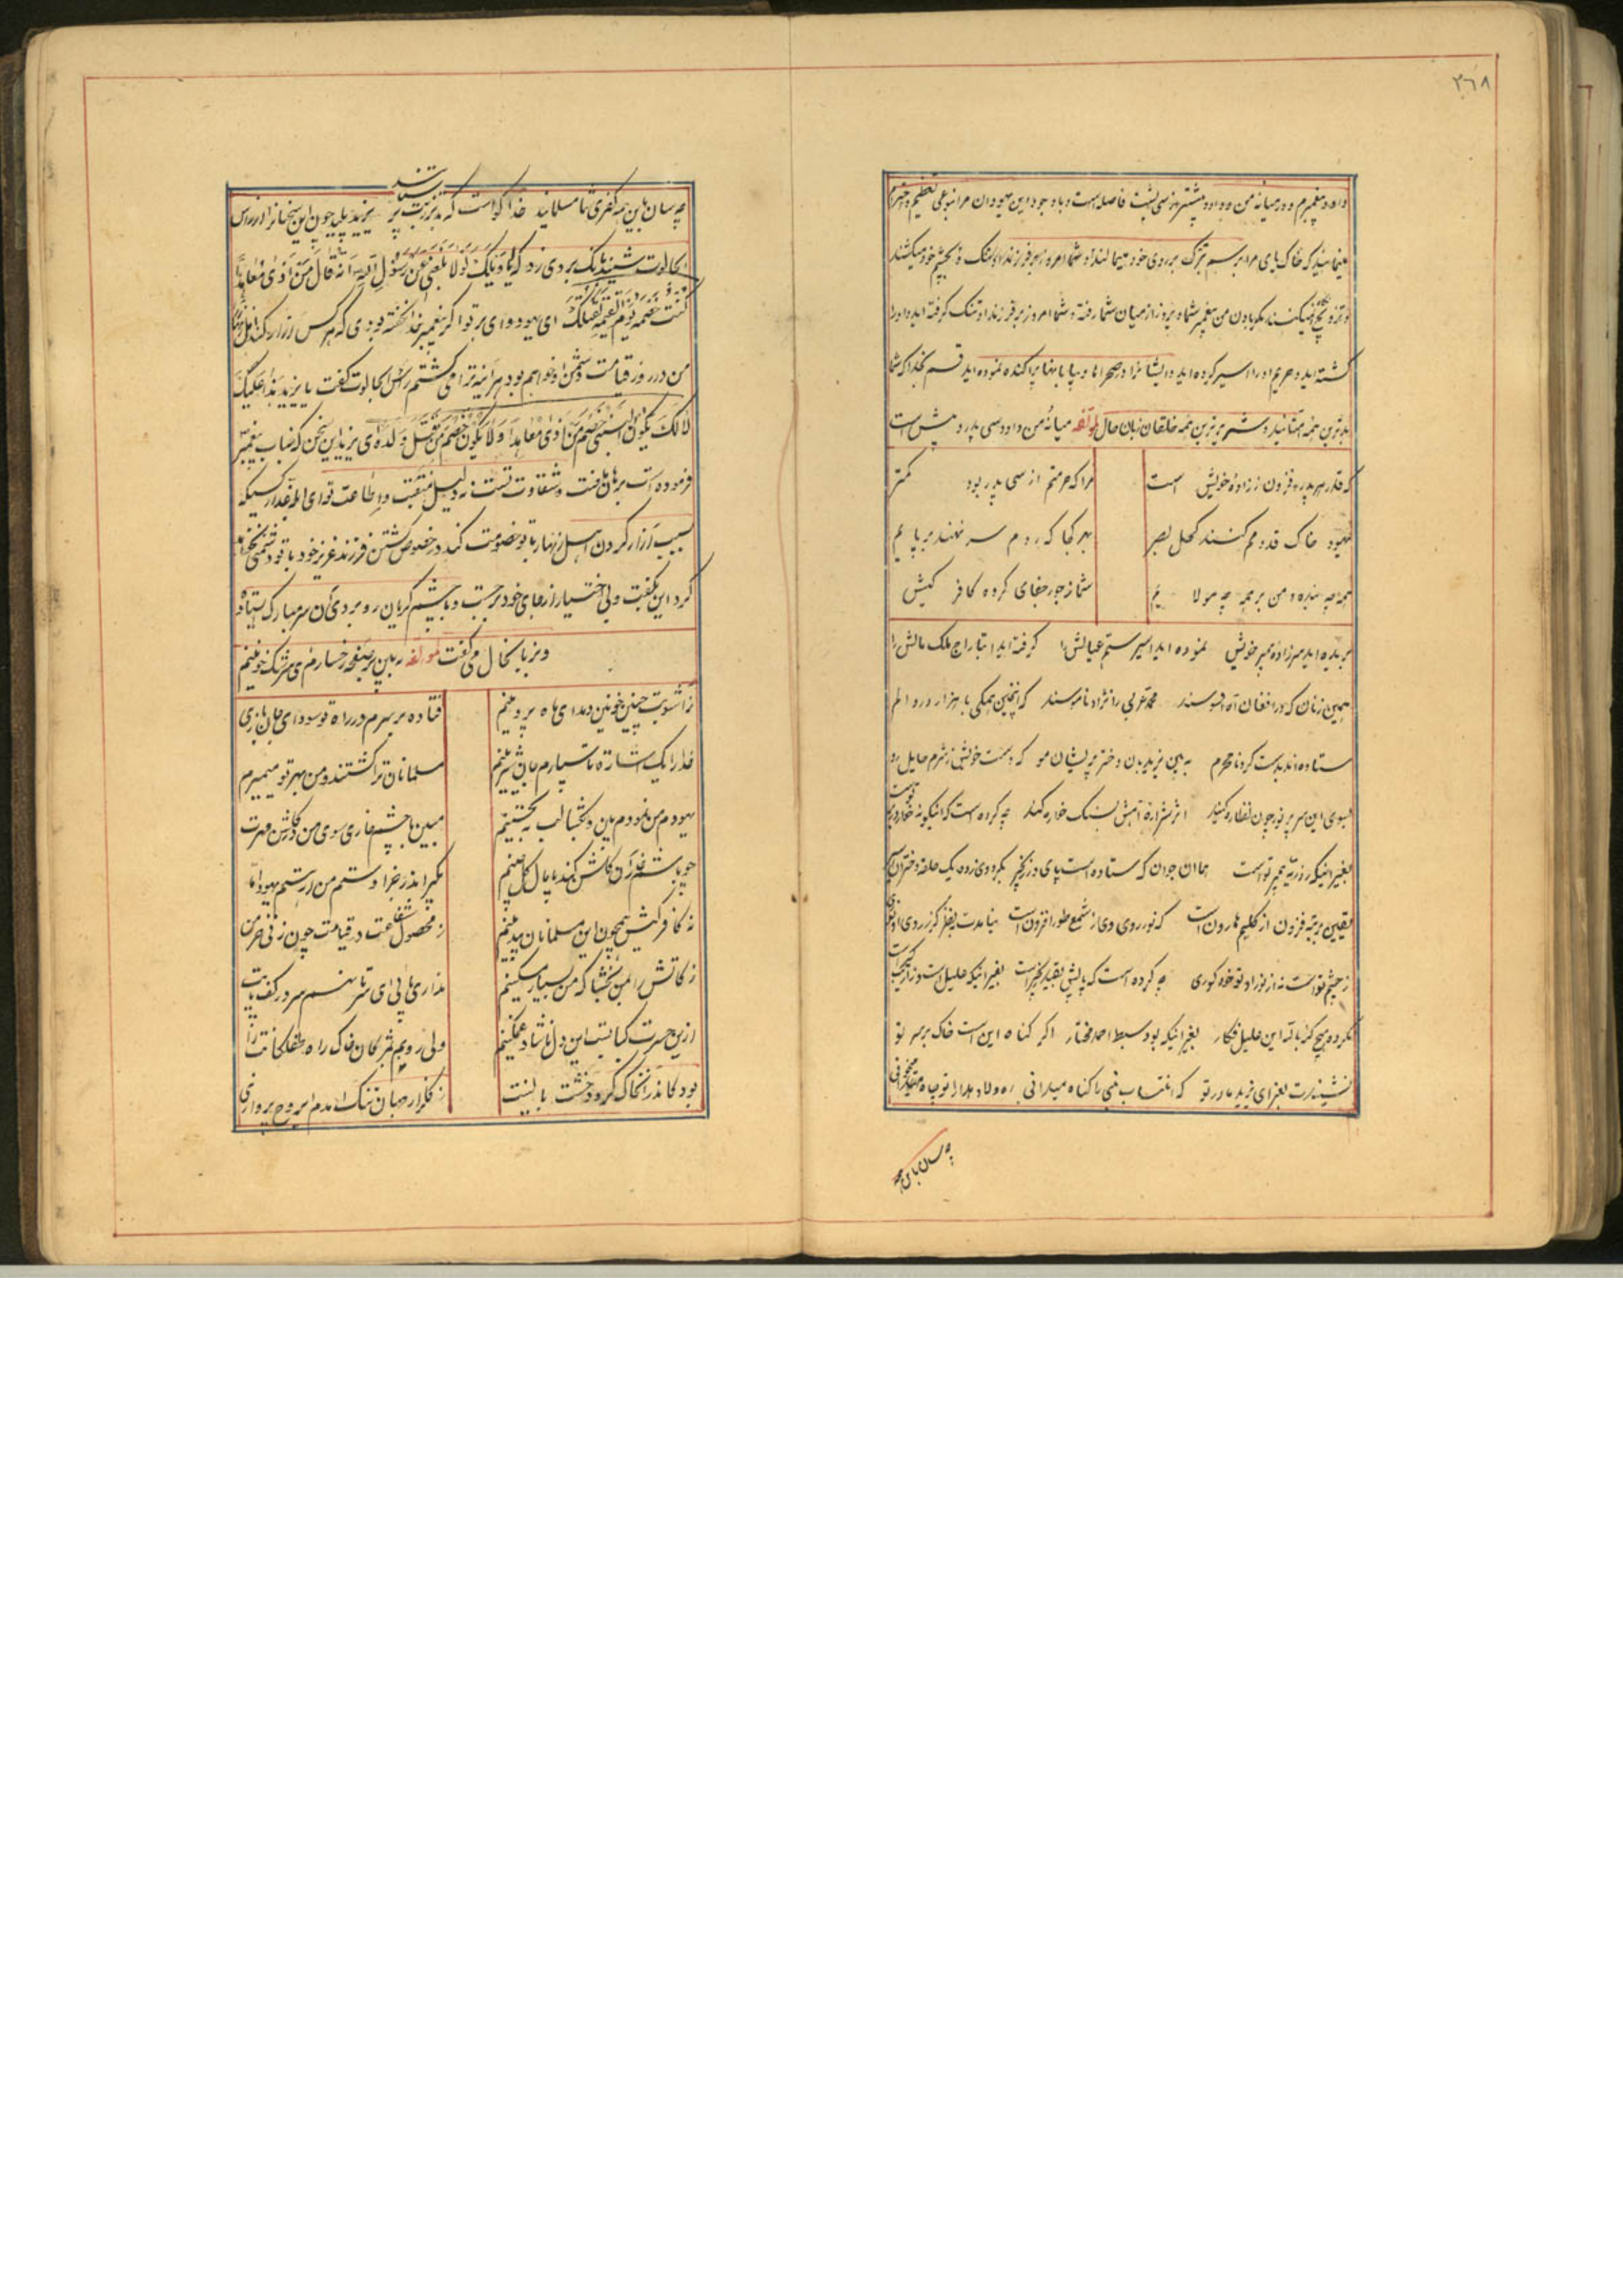 ۳۶۸
داود پیغمبرم و در میانه من و داود بیشتر از سی پشت فاصله است و با وجود این یهودان مرا بنوعی تعظیم و احترام
مینمایند که خاک پای مرا برسم تبرک بر روی خود میمالند و شما امروز بر فرزند او تنک و بچشم خود میکشند
و تزویج نمیکنند مگر با اذن من پیغمبر شما دیروز از میان شما رفته و شما امروز بر فرزند او تنک گرفته اید و او را
کشته اید و حریم او را اسیر کرده اید و ایشانرا در صحراها و بیابانها پراکنده نموده اید قسم بخدا که شما
بدترین همه امتانید و شریرترین همه خلقان زبان حال لمؤلفه میانه من و داود سی پدر و بیش است
که قدر هر پدر فزون ز زاده خویش است
مرا که حرمتم از سی پدر بود کمتر
یهود خاک قدومم کنند کحل بصر
بهر کجا که روم سر نهند بر پایم
همه چه بنده و من بر همه چه مولایم
شما ز جور و جفای کروه کافر کیش
بریده اید سر زاده پیمبر خویش نموده اید اسیر ستم عیالش را گرفته اید بتاراج ملک و مالش را
همین زنان که در افغان و آه و افسوسند محمد عربی را نژاد و ناموسند که اینچنین همکی با هزار درد و الم
ستاده اند بدست کرد نامحرم به بین یزید بدان دختر پریشان مو که دست خویش ز شرم حایل رو
بسوی این سر پر نور چون نظاره کند اثر شراره آهش بسنگ خاره کند چه کرده است که اینکونه خوار در بر توست
بغیر اینکه ز ذریه پیمبر توست همان جوان که ستاده است پای در زنجیر بگرد وی زده یک حلقه دختران اسیر
یقین برتبه فزون از کلیم هارون است که نور روی وی از شمع طور افزون است
ز چشم توست نه از نور او تو خود کوری چه کرده است که پایش بقید زنجیر است بغیر اینکه علیل است و زار
نکرده هیچ کنه بالله این علیل فکار بغیر اینکه بود سبط احمد مختار اگر کناه این است خاک بر سر تو
نشیندت بعزا ای یزید مادر تو که انتساب نبی را کناه میدانی
چه سان باین همه
چه سان باین همه کفری شما مسلمانید خدا گواست که بدتر ز بت پرستانند یزید پلید چون این سخنانرا از راس
الجالوت شنید بانک بر وی زد که یا ویلک لولا بلغنی عن رسول الله انه قال من آذی معاهدا
کنت خصمه یوم القیمه لقتلتک ای یهود وای بر تو اگر پیغمبر خدا نگفته بودی که هر کس آزار کند اهل ذمه را
من در روز قیامت دشمن او خواهم بود هر آینه ترا می کشتم راس الجالوت گفت یا یزید هذا علیک
لا لک یکون النبی خصم من آذی معاهدا و لا یکون خصم من قتل ولده ای یزید این سخن که جناب پیغمبر
فرموده است برهان شقاوت تست نه دلیل منقبت و اطاعت تو ای ابله غدار کسیکه
بسبب آزار کردن اهل زنهار با تو خصومت کند در خصوص کشتن فرزند عزیز خود با تو دشمنی نخواهد
کرد این بگفت و بی اختیار از جای خود برجست و با چشم گریان رو بروی آن سر مبارک بیستاد
و بزبانحال می گفت لمؤلفه ببین بر صفحه رخسارم ای سر اشک خونینم
ز آشوبت چنین خونین دمد ای ماه پروینم
فتاده بر سرم در راه تو سودای جان بازی
خدا را یک اشاره تا سپارم جان شیرینم
مسلمانان ترا کشتند و من بهر تو میمیرم
یهودم من نه نمرودم بیان و بگشا لب به تحسینم
مبین با چشم خاری سوی من
مگیر اندر جزا دستم من ار رستم یهود اما
نه کافر کیش همچون این مسلمانان بیدینم
ز محصول شفاعت در قیامت چون ز نی خرمن
زکاتش را بمن بخشا که من بسیار مسکینم
نداری پای ای سر تا نهم سر در کف پایت
ازین حسرت کبابست این دل ناشاد غمگینم
ولی روبم بمژگان خاک راه طفلکانت را
بود کاندر آنخاک گردد خشت بالینت
ز گلزار جهان تنک آمدم ای روح پروازی